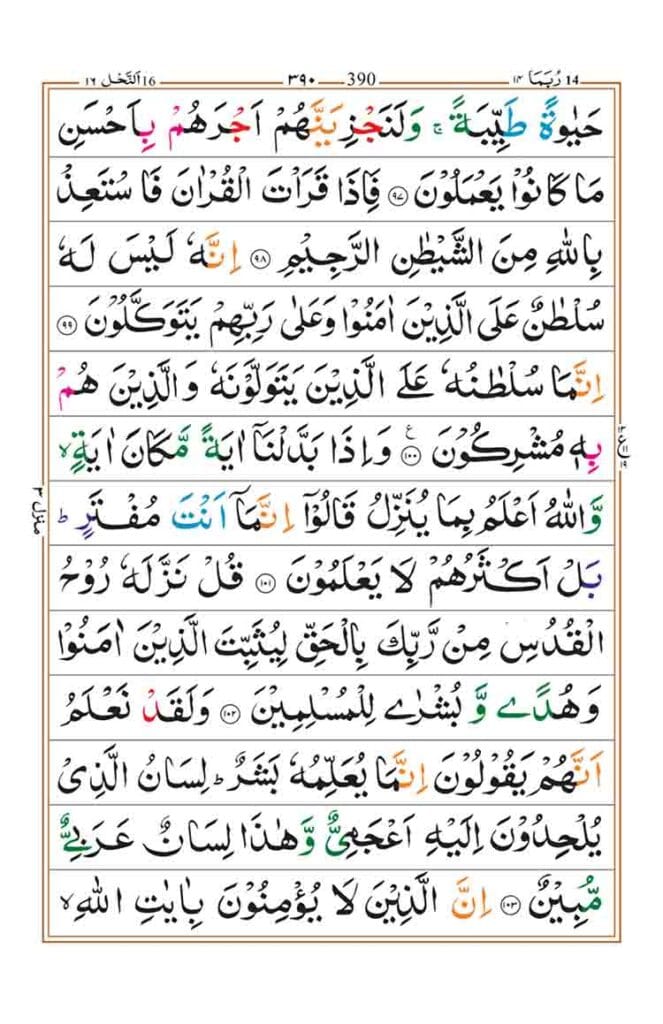 ١٤ رُبَمَا 14 390 ٣٩٠ 16 اَلنَّحْل ١٦
حَيٰوةً طَيِّبَةً ۚ وَلَنَجْزِيَنَّهُمْ اَجْرَهُمْ بِاَحْسَنِ
مَا كَانُوْا يَعْمَلُوْنَ ﴿٩٧﴾ فَاِذَا قَرَاْتَ الْقُرْاٰنَ فَاسْتَعِذْ
بِاللّٰهِ مِنَ الشَّيْطٰنِ الرَّجِيْمِ ﴿٩٨﴾ اِنَّهٗ لَيْسَ لَهٗ
سُلْطٰنٌ عَلَى الَّذِيْنَ اٰمَنُوْا وَعَلٰى رَبِّهِمْ يَتَوَكَّلُوْنَ ﴿٩٩﴾
اِنَّمَا سُلْطٰنُهٗ عَلَى الَّذِيْنَ يَتَوَلَّوْنَهٗ وَالَّذِيْنَ هُمْ
بِهٖ مُشْرِكُوْنَ ﴿١٠٠﴾ ع وَاِذَا بَدَّلْنَاۤ اٰيَةً مَّكَانَ اٰيَةٍ ۙ
وَّاللّٰهُ اَعْلَمُ بِمَا يُنَزِّلُ قَالُوْۤا اِنَّمَاۤ اَنْتَ مُفْتَرٍ ؕ
بَلْ اَكْثَرُهُمْ لَا يَعْلَمُوْنَ ﴿١٠١﴾ قُلْ نَزَّلَهٗ رُوْحُ
الْقُدُسِ مِنْ رَّبِّكَ بِالْحَقِّ لِيُثَبِّتَ الَّذِيْنَ اٰمَنُوْا
وَهُدًى وَّ بُشْرٰى لِلْمُسْلِمِيْنَ ﴿١٠٢﴾ وَلَقَدْ نَعْلَمُ
اَنَّهُمْ يَقُوْلُوْنَ اِنَّمَا يُعَلِّمُهٗ بَشَرٌ ؕ لِسَانُ الَّذِىْ
يُلْحِدُوْنَ اِلَيْهِ اَعْجَمِىٌّ وَّهٰذَا لِسَانٌ عَرَبِىٌّ
مُّبِيْنٌ ﴿١٠٣﴾ اِنَّ الَّذِيْنَ لَا يُؤْمِنُوْنَ بِاٰيٰتِ اللّٰهِ ۙ
منزل ٣